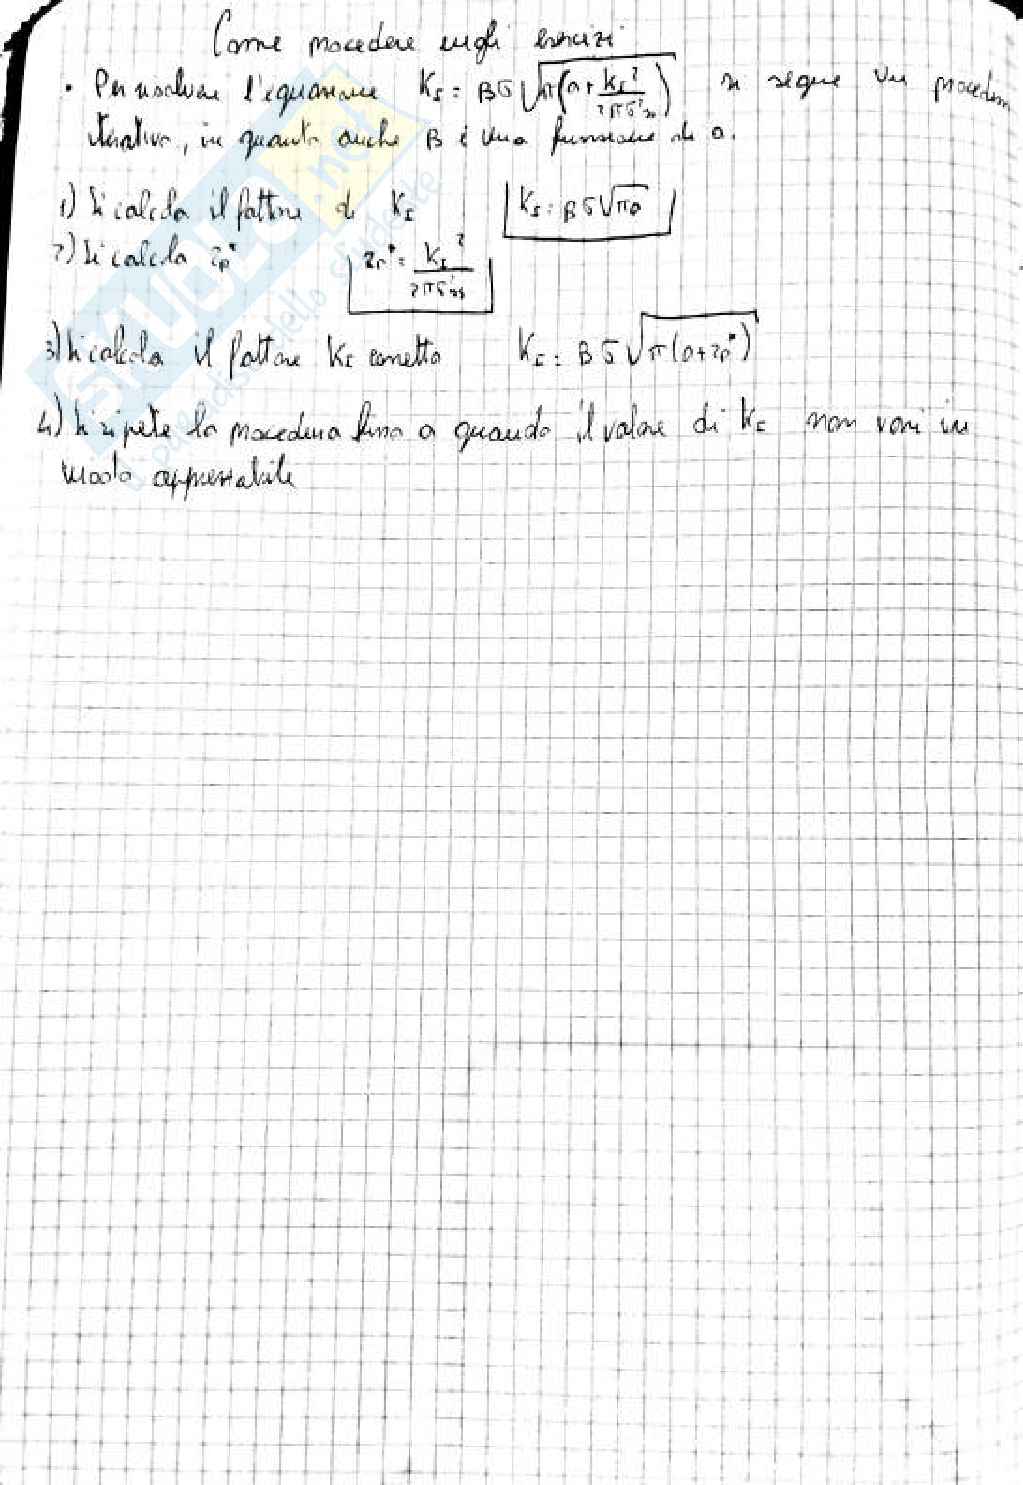 Come procedere negli esercizi
• Per risolvere l'equazione K_I = β σ √(π(a + K_I²/(2πσ²ys))) si segue un procedim
iterativo, in quanto anche β è una funzione di a.
1) Si calcola il fattore di K_I   K_I = β σ √(πa)
2) Si calcola rp*   rp* = K_I²/(2πσ²ys)
3) Si calcola il fattore K_I corretto   K_I = β σ √(π(a + rp*))
4) Si ripete la procedura fino a quando il valore di K_I non vari in
modo apprezzabile
SKUOLA.net
dello studente